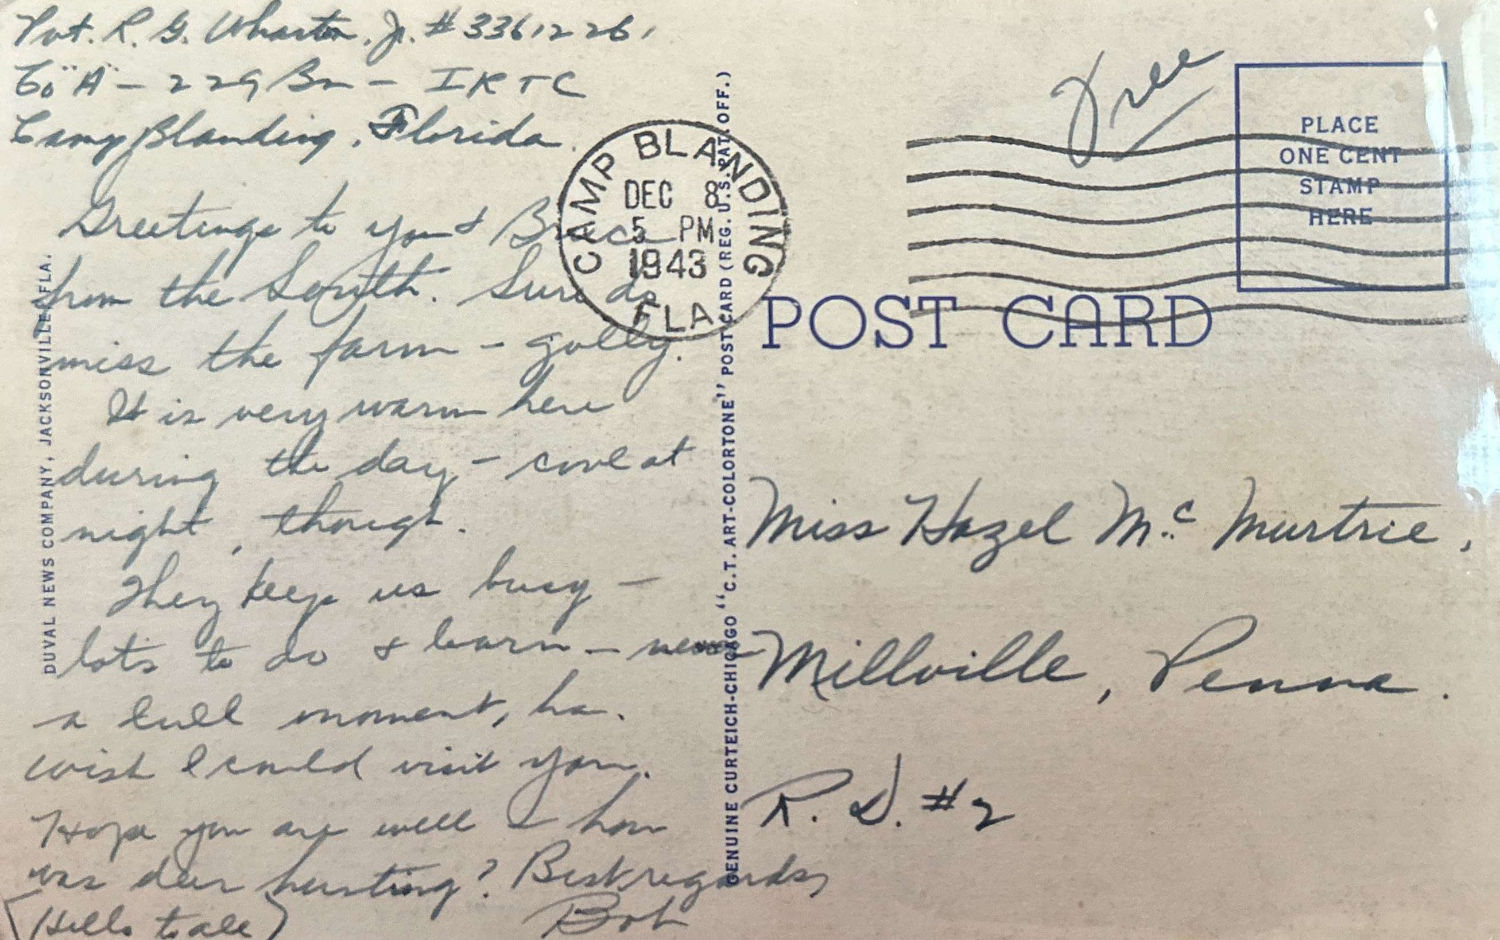 Pvt. R. G. Wharton, Jr. #33612261
Co "A" - 229 Bn - IRTC
Camp Blanding, Florida.
Greetings to you & Bruce
from the South. Sure do
miss the farm - golly.
It is very warm here
during the day - cool at
night, though.
They keep us busy -
lots to do & learn - never
a lull moment, ha.
wish I could visit you.
Hope you are well & how
was deer hunting? Best regards,
(Hello to all) Bob
DUVAL NEWS COMPANY, JACKSONVILLE, FLA.
CAMP BLANDING
DEC 8
5 PM
1943
FLA.
GENUINE CURTEICH-CHICAGO "C.T. ART-COLORTONE" POST CARD (REG. U.S. PAT. OFF.)
Free
PLACE
ONE CENT
STAMP
HERE
POST CARD
Miss Hazel McMurtrie,
Millville, Penna.
R. D. #2